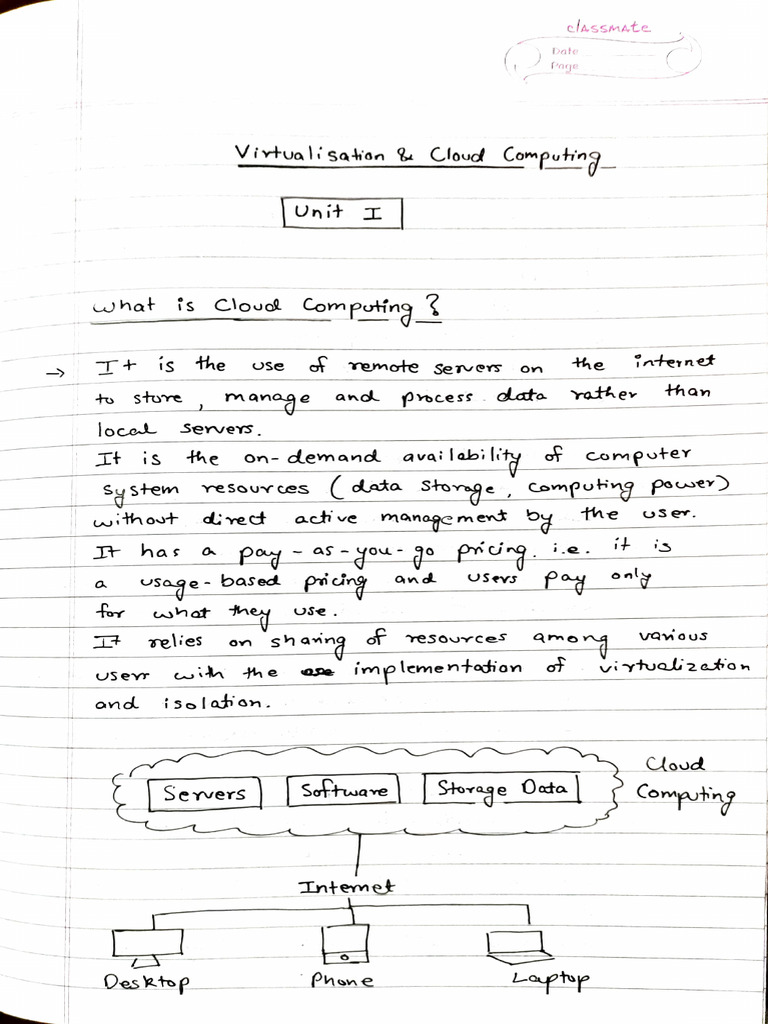 classmate
Date
Page
Virtualisation & Cloud Computing
Unit I
What is Cloud Computing?
→ It is the use of remote servers on the internet
to store, manage and process data rather than
local servers.
It is the on-demand availability of computer
system resources (data storage, computing power)
without direct active management by the user.
It has a pay-as-you-go pricing. i.e. it is
a usage-based pricing and users pay only
for what they use.
It relies on sharing of resources among various
users with the implementation of virtualization
and isolation.
Cloud
Computing
Servers Software Storage Data
Internet
Desktop Phone Laptop